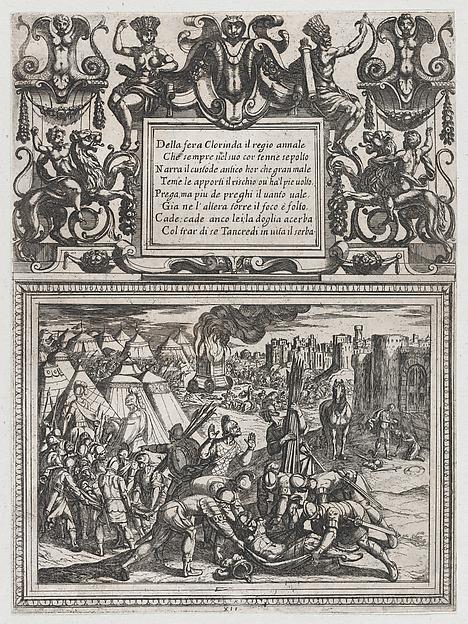 Della fera Clorinda il regio annale
Che sempre nel suo cor tenne sepolto
Narra il custode antico hor che gran male
Teme le apporti il rischio ou' ha'l pie uolto.
Prega, ma più de preghi il uanto uale.
Gia ne l'altera torre il foco è folto.
Cade, cade anco lei, la doglia acerba
Col frar di se Tancredi in uita il serba
XII